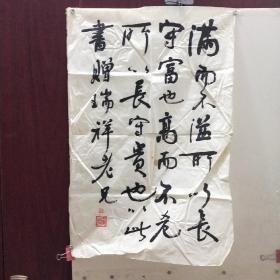 满而不溢所以长
守富也高而不危
所以长守贵也以此
书赠瑞祥老兄